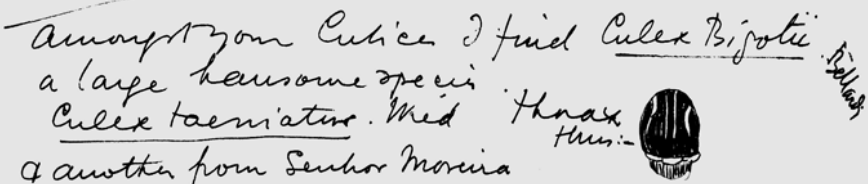 Amongst your Culices I find Culex Bigotii. Bellardi
a large hansome specis
Culex taeniatus. Wied Thorax
thus:-
& another from Senhor Moreira